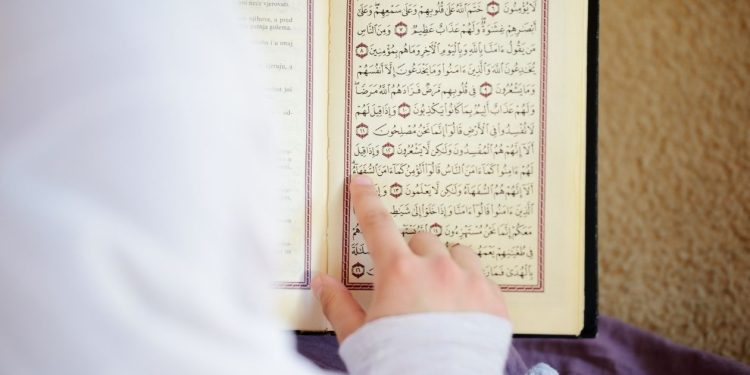 neće vjerovati.
njihove, a pred
لَا يُؤْمِنُونَ ٦ خَتَمَ ٱللَّهُ عَلَىٰ قُلُوبِهِمْ وَعَلَىٰ سَمْعِهِمْ وَعَلَىٰ
أَبْصَٰرِهِمْ غِشَٰوَةٌ وَلَهُمْ عَذَابٌ عَظِيمٌ ٧ وَمِنَ ٱلنَّاسِ
مَن يَقُولُ ءَامَنَّا بِٱللَّهِ وَبِٱلْيَوْمِ ٱلْءَاخِرِ وَمَا هُم بِمُؤْمِنِينَ ٨
يُخَٰدِعُونَ ٱللَّهَ وَٱلَّذِينَ ءَامَنُوا۟ وَمَا يَخْدَعُونَ إِلَّآ أَنفُسَهُمْ
وَمَا يَشْعُرُونَ ٩ فِى قُلُوبِهِم مَّرَضٌ فَزَادَهُمُ ٱللَّهُ مَرَضًا
وَلَهُمْ عَذَابٌ أَلِيمٌۢ بِمَا كَانُوا۟ يَكْذِبُونَ ١٠ وَإِذَا قِيلَ لَهُمْ
لَا تُفْسِدُوا۟ فِى ٱلْأَرْضِ قَالُوٓا۟ إِنَّمَا نَحْنُ مُصْلِحُونَ ١١
أَلَآ إِنَّهُمْ هُمُ ٱلْمُفْسِدُونَ وَلَٰكِن لَّا يَشْعُرُونَ ١٢ وَإِذَا قِيلَ
لَهُمْ ءَامِنُوا۟ كَمَآ ءَامَنَ ٱلنَّاسُ قَالُوٓا۟ أَنُؤْمِنُ كَمَآ ءَامَنَ ٱلسُّفَهَآءُ
أَلَآ إِنَّهُمْ هُمُ ٱلسُّفَهَآءُ وَلَٰكِن لَّا يَعْلَمُونَ ١٣
ٱلَّذِينَ ءَامَنُوا۟ قَالُوٓا۟ ءَامَنَّا وَإِذَا خَلَوْا۟ إِلَىٰ
مَعَكُمْ إِنَّمَا نَحْنُ مُسْتَهْزِءُونَ ١٤
فِى طُغْيَٰنِهِمْ يَعْمَهُونَ
بِٱلْهُدَىٰ ١٦